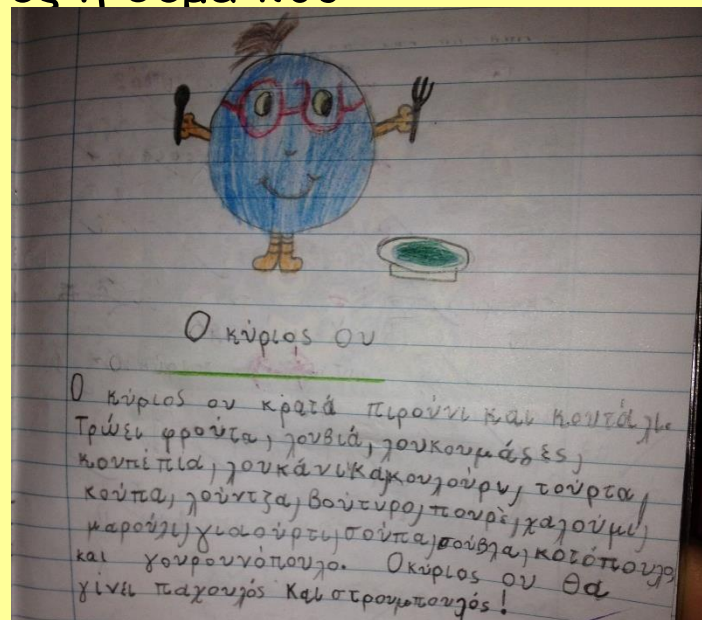 Ο κύριος ου
Ο κύριος ου κρατά πιρούνι και κουτάλι.
Τρώει φρούτα, λουβιά, λουκουμάδες,
κουπέπια, λουκάνικα, κουλούρι, τούρτα,
κούπα, λούντζα, βούτυρο, πουρέ, χαλούμι,
μαρούλι, γιαούρτι, σούπα, σούβλα, κοτόπουλο
και γουρουνόπουλο. Ο κύριος ου θα
γίνει παχουλός και στρουμπουλός!